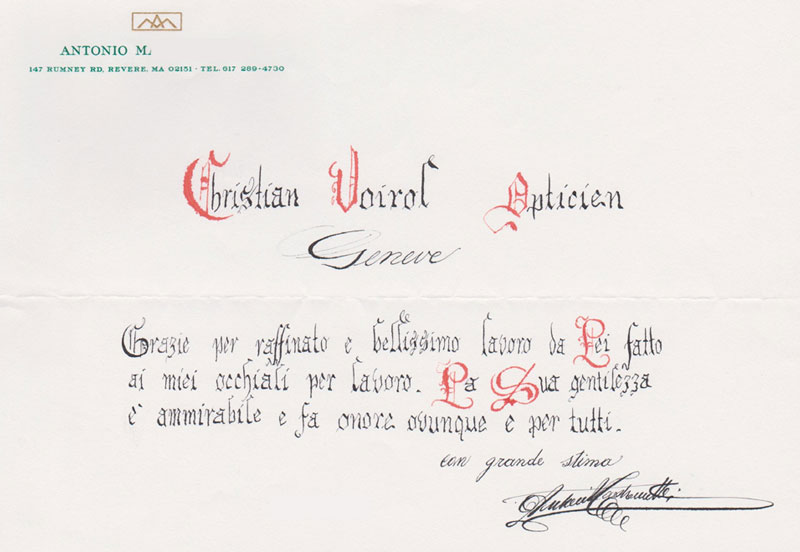 ANTONIO M.
147 RUMNEY RD, REVERE, MA 02151 · TEL. 617 289-4730
Christian Voirol Opticien
Geneve
Grazie per raffinato e bellissimo lavoro da Lei fatto
ai miei occhiali per lavoro. La Sua gentilezza
e' ammirabile e fa onore ovunque e per tutti.
con grande stima